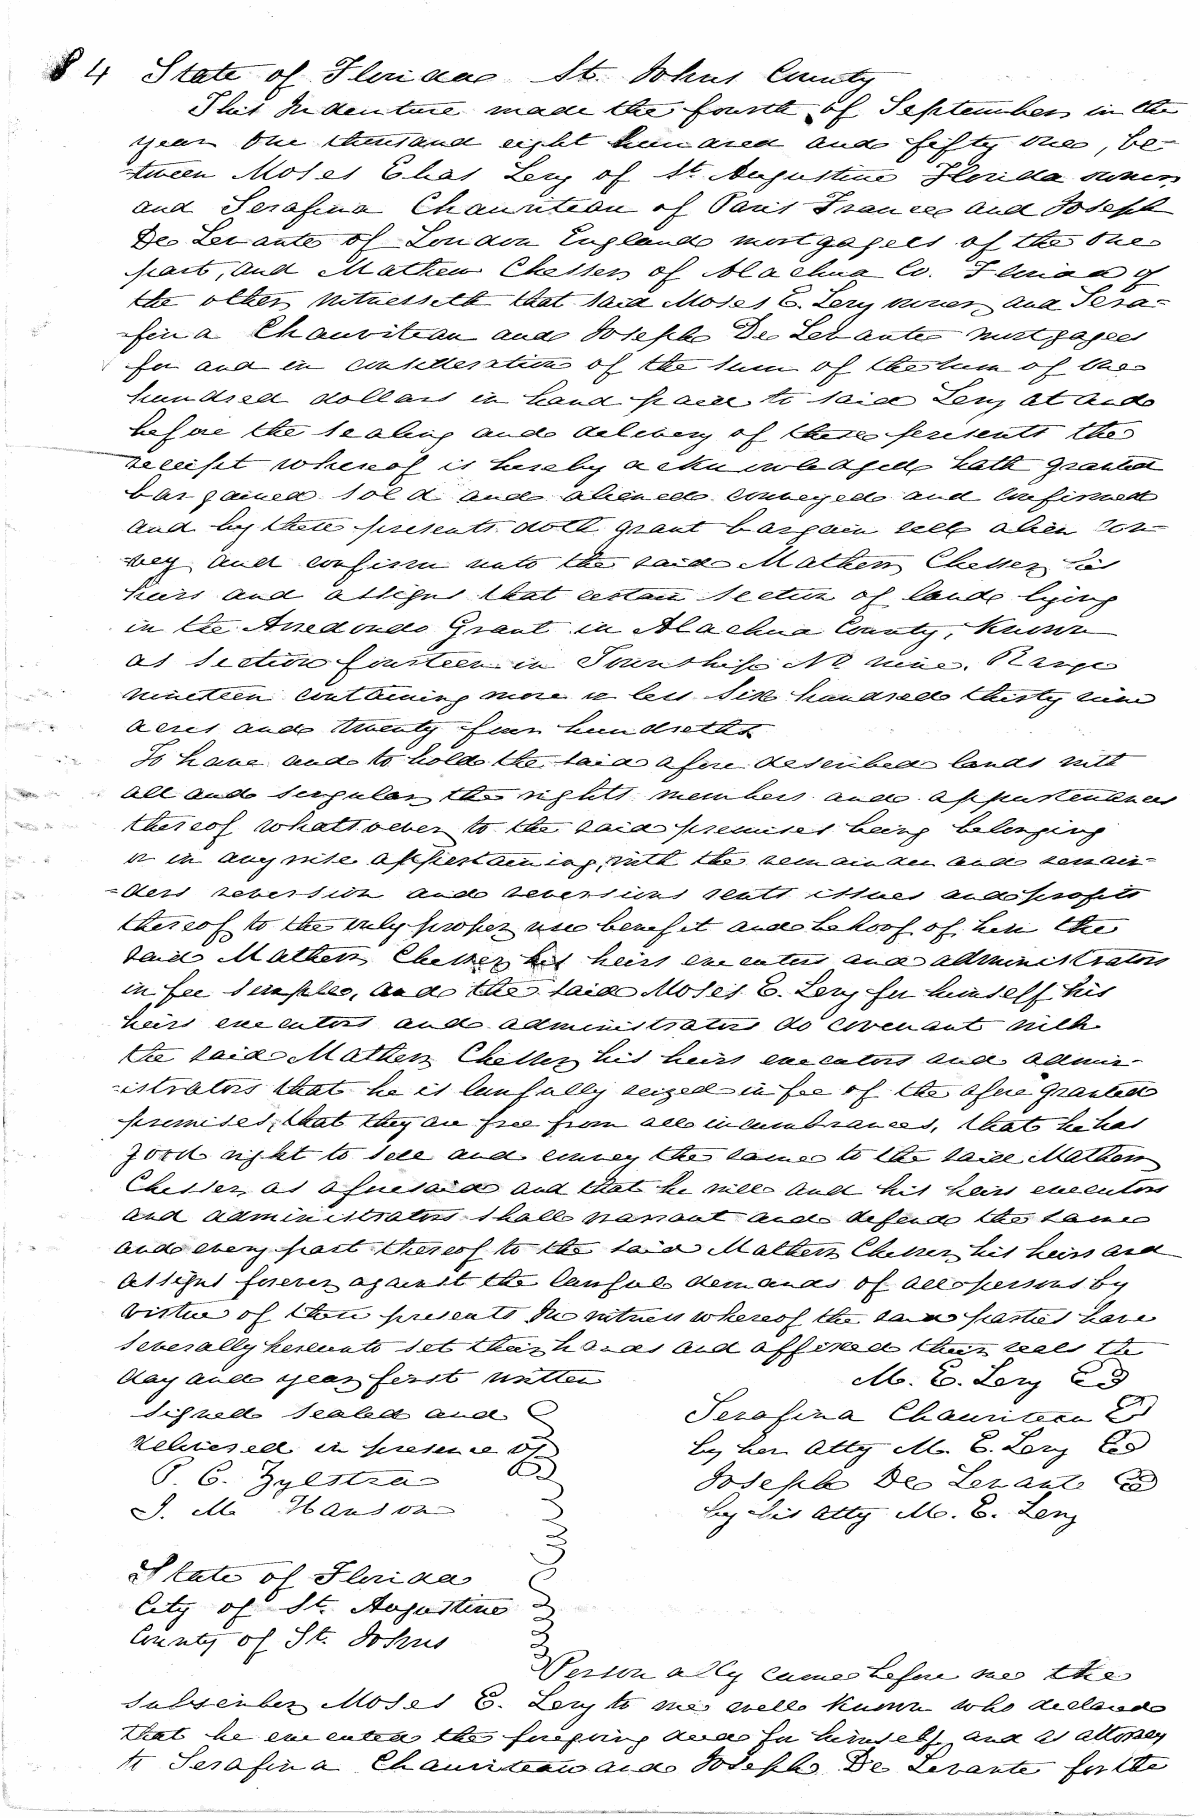 84 State of Florida St. Johns County
This Indenture made the fourth of September in the
year One thousand eight hundred and fifty one, be-
-tween Moses Elias Levy of St. Augustine Florida owner
and Serafina Chauviteau of Paris France and Joseph
De Levante of London England mortgagees of the one
part, and Mathew Chesser of Alachua Co. Florida of
the other, witnesseth that said Moses E. Levy owner, and Sera-
-fina Chauviteau and Joseph De Levante mortgagees
for and in consideration of the sum of the sum of One
hundred dollars in hand paid to said Levy at and
before the sealing and delivery of these presents the
receipt whereof is hereby acknowledged hath granted
bargained sold and aliened conveyed and confirmed
and by these presents doth grant bargain sell alien con-
-vey and confirm unto the said Mathew Chesser his
heirs and assigns that certain section of land lying
in the Arredondo Grant in Alachua County, known
as section fourteen in Township No nine, Range
nineteen containing more or less six hundred thirty nine
acres and twenty four hundreths
To have and to hold the said afore described lands with
all and singular the rights members and appurtenances
thereof whatsoever to the said premises being belonging
or in any wise appertaining, with the remainder and remain-
-ders reversion and reversions rents issues and profits
thereof to the only proper use benefit and behoof of him the
said Mathew Chesser his heirs executors and administrators
in fee simple, and the said Moses E. Levy for himself his
heirs executors and administrators do covenant with
the said Mathew Chesser his heirs executors and admin-
-istrators that he is lawfully seized in fee of the afore granted
premises, that they are free from all incumbrances, that he has
good right to sell and convey the same to the said Mathew
Chesser as aforesaid and that he will and his heirs executors
and administrators shall warrant and defend the same
and every part thereof to the said Mathew Chesser his heirs and
assigns forever against the lawful demands of all persons by
virtue of these presents In witness whereof the said parties have
severally hereunto set their hands and affixed their seals the
day and year first written M. E. Levy
Signed sealed and Serafina Chauviteau
delivered in presence of by her atty M. E. Levy
P. C. Zylstra Joseph De Levante
J. M. Hanson by his atty M. E. Levy
State of Florida
City of St. Augustine
County of St. Johns
Personally came before me the
subscriber Moses E. Levy to me well known who declared
that he executed the foregoing deed for himself, and as attorney
to Serafina Chauviteau and Joseph De Levante for the